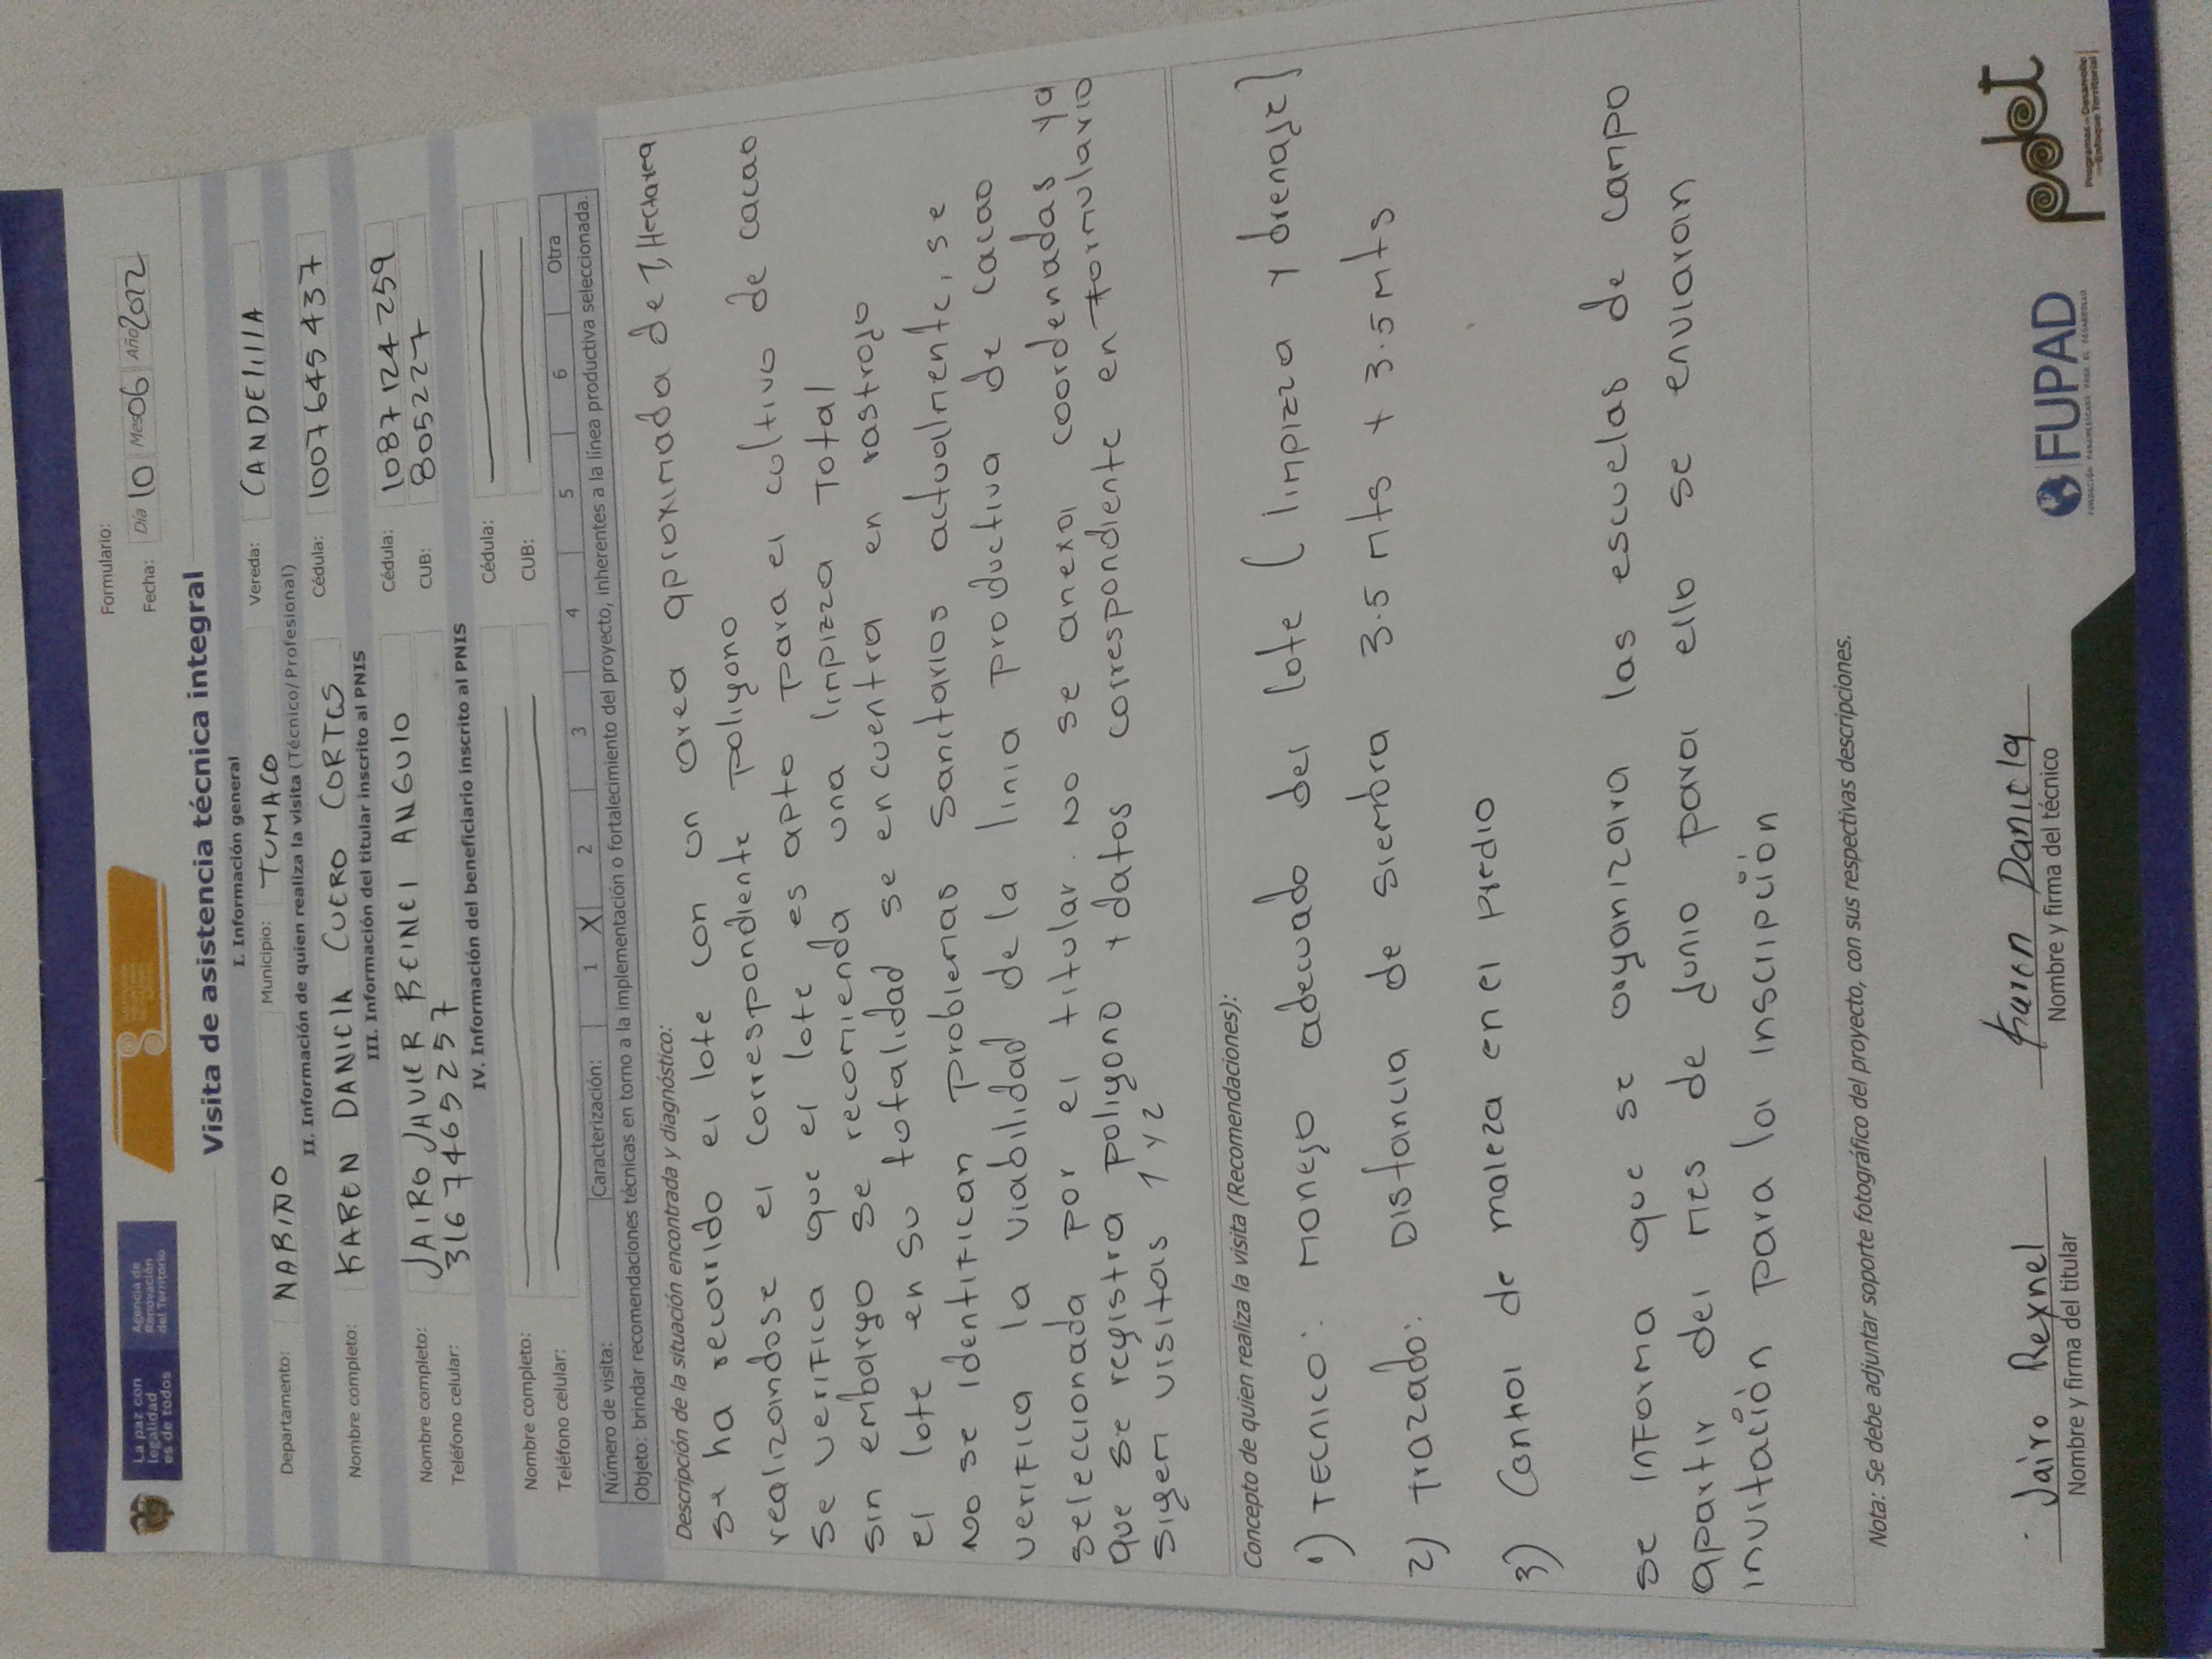 La paz con
legalidad
es de todos
Agencia de
Renovación
del Territorio
Formulario:
Fecha: Día 10 Mes 06 Año 2022
Visita de asistencia técnica integral
I. Información general
Departamento: NARIÑO Municipio: TUMACO Vereda: CANDElillA
II. Información de quien realiza la visita (Técnico/Profesional)
Nombre completo: KAREN DANIElA CUERO CORTES Cédula: 1007645437
III. Información del titular inscrito al PNIS
Nombre completo: JAIRO JAVIER REINEl ANGUlO Cédula: 1087124259
Teléfono celular: 3167465257 CUB: 805227
IV. Información del beneficiario inscrito al PNIS
Nombre completo: Cédula:
Teléfono celular: CUB:
Número de visita: Caracterización: 1 X 2 3 4 5 6 Otra
Objeto: brindar recomendaciones técnicas en torno a la implementación o fortalecimiento del proyecto, inherentes a la línea productiva seleccionada.
Descripción de la situación encontrada y diagnóstico:
se ha recorrido el lote con un area aproximada de 1, Hectarea
realizandose el correspondiente poligono
se verifica que el lote es apto para el cultivo de cacao
sin embargo se recomienda una limpieza Total
el lote en su totalidad se encuentra en rastrojo
No se identifican problemas sanitarios actualmente, se
verifica la viabilidad de la linia productiva de cacao
seleccionada por el titular. No se anexa coordenadas ya
que se registra poligono + datos correspondiente en formulario
sigem visitas 1 y 2
Concepto de quien realiza la visita (Recomendaciones):
1) TECNICO: Manejo adecuado del lote (limpieza y drenaje)
2) Trazado: Distancia de siembra 3.5 mts + 3.5 mts
3) Control de maleza en el predio
se informa que se organizara las escuelas de campo
apartir del mes de Junio para ello se enviaran
invitación para la inscripción
Nota: Se debe adjuntar soporte fotográfico del proyecto, con sus respectivas descripciones.
Jairo Reynel
Nombre y firma del titular
Karen Daniela
Nombre y firma del técnico
FUPAD
FUNDACIÓN PANAMERICANA PARA EL DESARROLLO
pdet
Programas de Desarrollo
con Enfoque Territorial